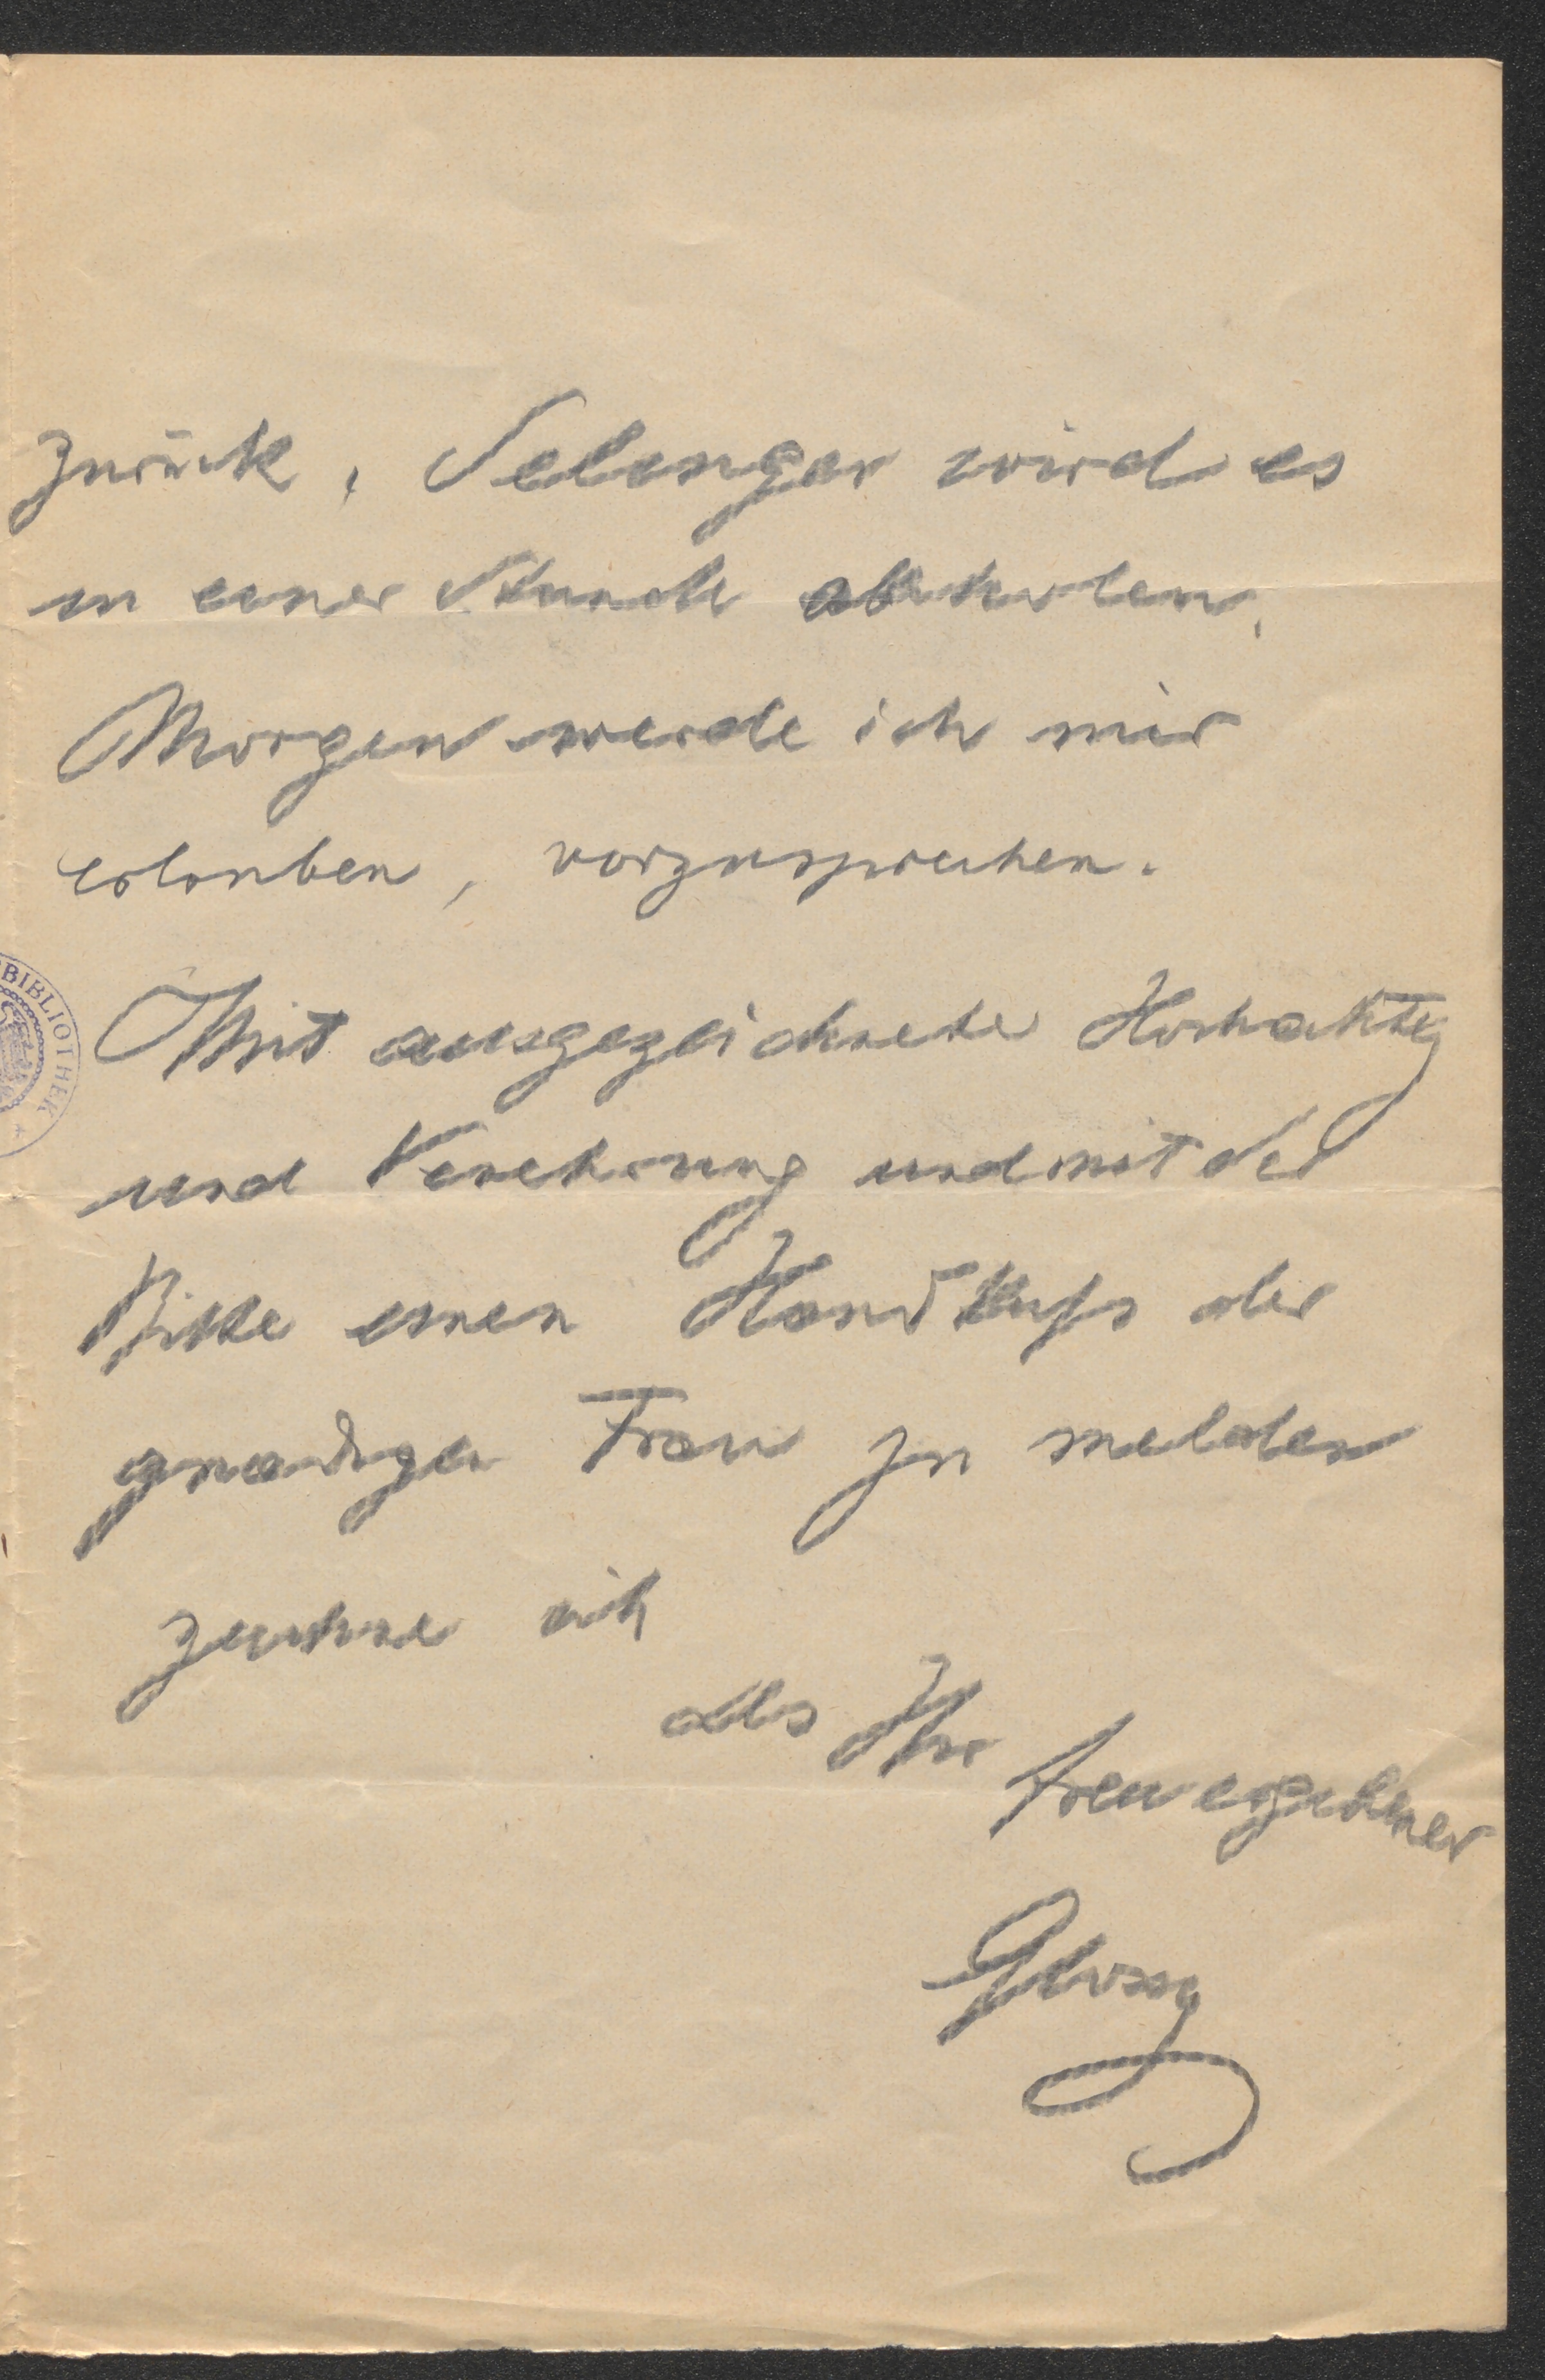 zurück, Selenger wird es
in einer Stunde abholen.
Morgen werde ich mir
erlauben, vorzusprechen.
Mit ausgezeichneter Hochachtg
und Verehrung und mit der
Bitte einen Handkuß der
gnädigen Frau zu melden
zeichne ich
als Ihr treuergebener
Glossy
BIBLIOTHEK *